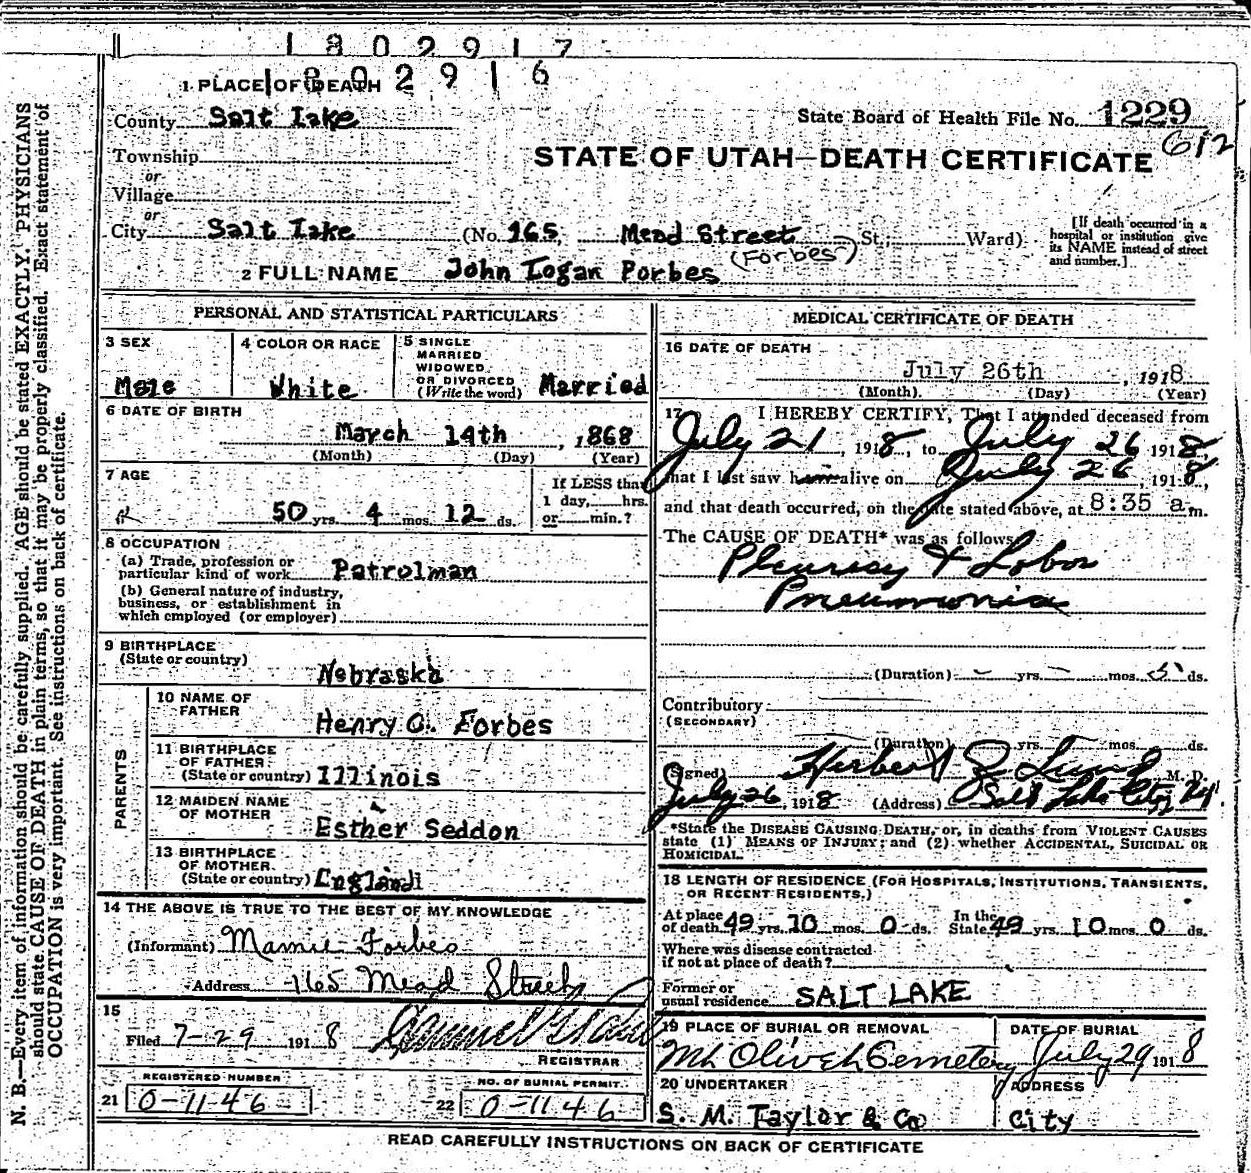 1802917
1802916
1 PLACE OF DEATH
County Salt Lake
State Board of Health File No. 1229
612
Township
or
Village
or
STATE OF UTAH—DEATH CERTIFICATE
City Salt Lake (No. 165, Mead Street St.; Ward)
[If death occurred in a hospital or institution give its NAME instead of street and number.]
2 FULL NAME John Logan Forbes (Forbes)
PERSONAL AND STATISTICAL PARTICULARS
3 SEX Male
4 COLOR OR RACE White
5 SINGLE MARRIED WIDOWED OR DIVORCED (Write the word) Married
6 DATE OF BIRTH
March 14th, 1868
(Month) (Day) (Year)
7 AGE
50 yrs. 4 mos. 12 ds.
If LESS than 1 day, hrs. or min.?
8 OCCUPATION
(a) Trade, profession or particular kind of work Patrolman
(b) General nature of industry, business, or establishment in which employed (or employer)
9 BIRTHPLACE
(State or country) Nebraska
PARENTS
10 NAME OF FATHER Henry O. Forbes
11 BIRTHPLACE OF FATHER (State or country) Illinois
12 MAIDEN NAME OF MOTHER Esther Seddon
13 BIRTHPLACE OF MOTHER (State or country) England
14 THE ABOVE IS TRUE TO THE BEST OF MY KNOWLEDGE
(Informant) Mamie Forbes
Address 165 Mead Street
15
Filed 7-29 1918
REGISTRAR
REGISTERED NUMBER
21 0-1146
NO. OF BURIAL PERMIT
22 0-1146
MEDICAL CERTIFICATE OF DEATH
16 DATE OF DEATH
July 26th, 1918
(Month) (Day) (Year)
17 I HEREBY CERTIFY, That I attended deceased from
July 21, 1918, to July 26 1918,
that I last saw him alive on July 26, 1918,
and that death occurred, on the date stated above, at 8:35 a m.
The CAUSE OF DEATH* was as follows:
Pleurisy & Lobar
Pneumonia
(Duration) yrs. mos. 5 ds.
Contributory
(SECONDARY)
(Duration) yrs. mos. ds.
(Signed) Herbert Z Lund M. D.
July 26, 1918 (Address) Salt Lake City
*State the DISEASE CAUSING DEATH, or, in deaths from VIOLENT CAUSES
state (1) MEANS OF INJURY; and (2) whether ACCIDENTAL, SUICIDAL OR
HOMICIDAL.
18 LENGTH OF RESIDENCE (FOR HOSPITALS, INSTITUTIONS, TRANSIENTS,
OR RECENT RESIDENTS.)
At place of death 49 yrs. 10 mos. 0 ds. In the State 49 yrs. 10 mos. 0 ds.
Where was disease contracted
if not at place of death?
Former or usual residence SALT LAKE
19 PLACE OF BURIAL OR REMOVAL
Mt Olivet Cemetery
DATE OF BURIAL
July 29 1918
20 UNDERTAKER
S. M. Taylor & Co
ADDRESS
City
READ CAREFULLY INSTRUCTIONS ON BACK OF CERTIFICATE
N. B.—Every item of information should be carefully supplied. AGE should be stated EXACTLY. PHYSICIANS
should state CAUSE OF DEATH in plain terms, so that it may be properly classified. Exact statement of
OCCUPATION is very important. See instructions on back of certificate.